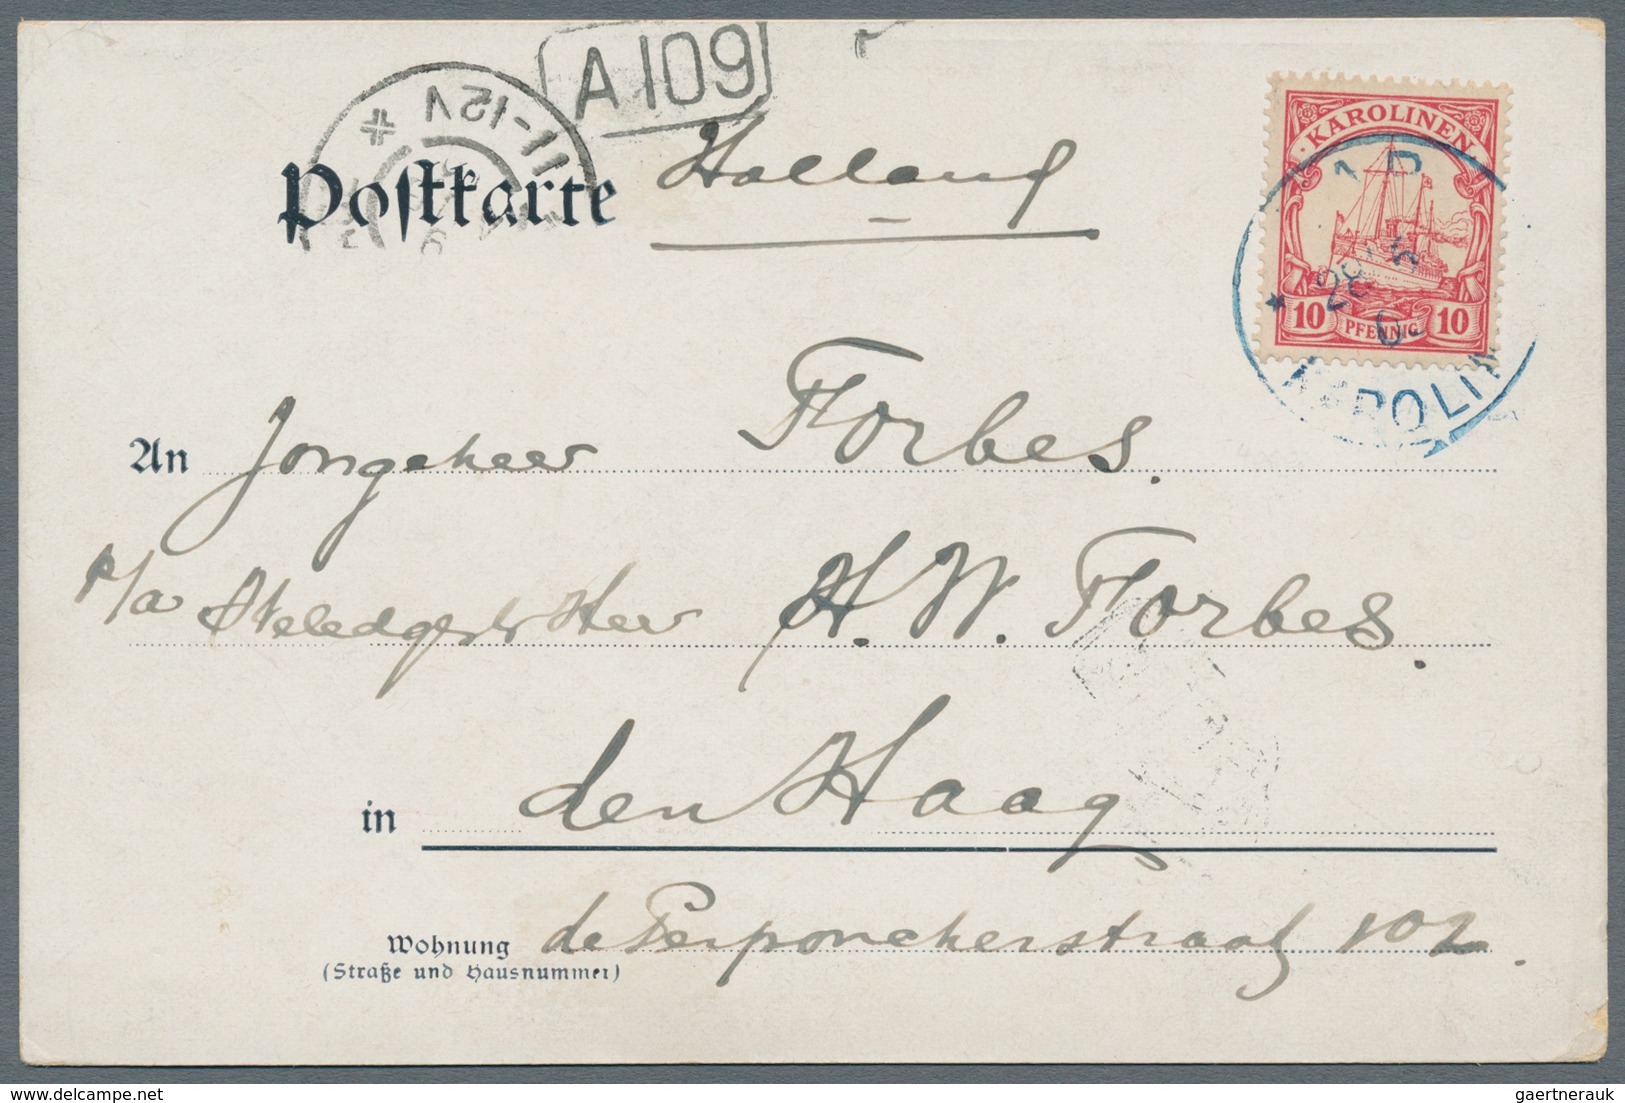 A 109
11-12V
Postkarte Holland
KAROLINEN
10 PFENNIG 10
YAP
28 6
An Jongeheer Forbes.
p/a Heer H. W. Forbes.
in den Haag
Wohnung de Perponcherstraat 102.
(Straße und Hausnummer)
gaertnerauk